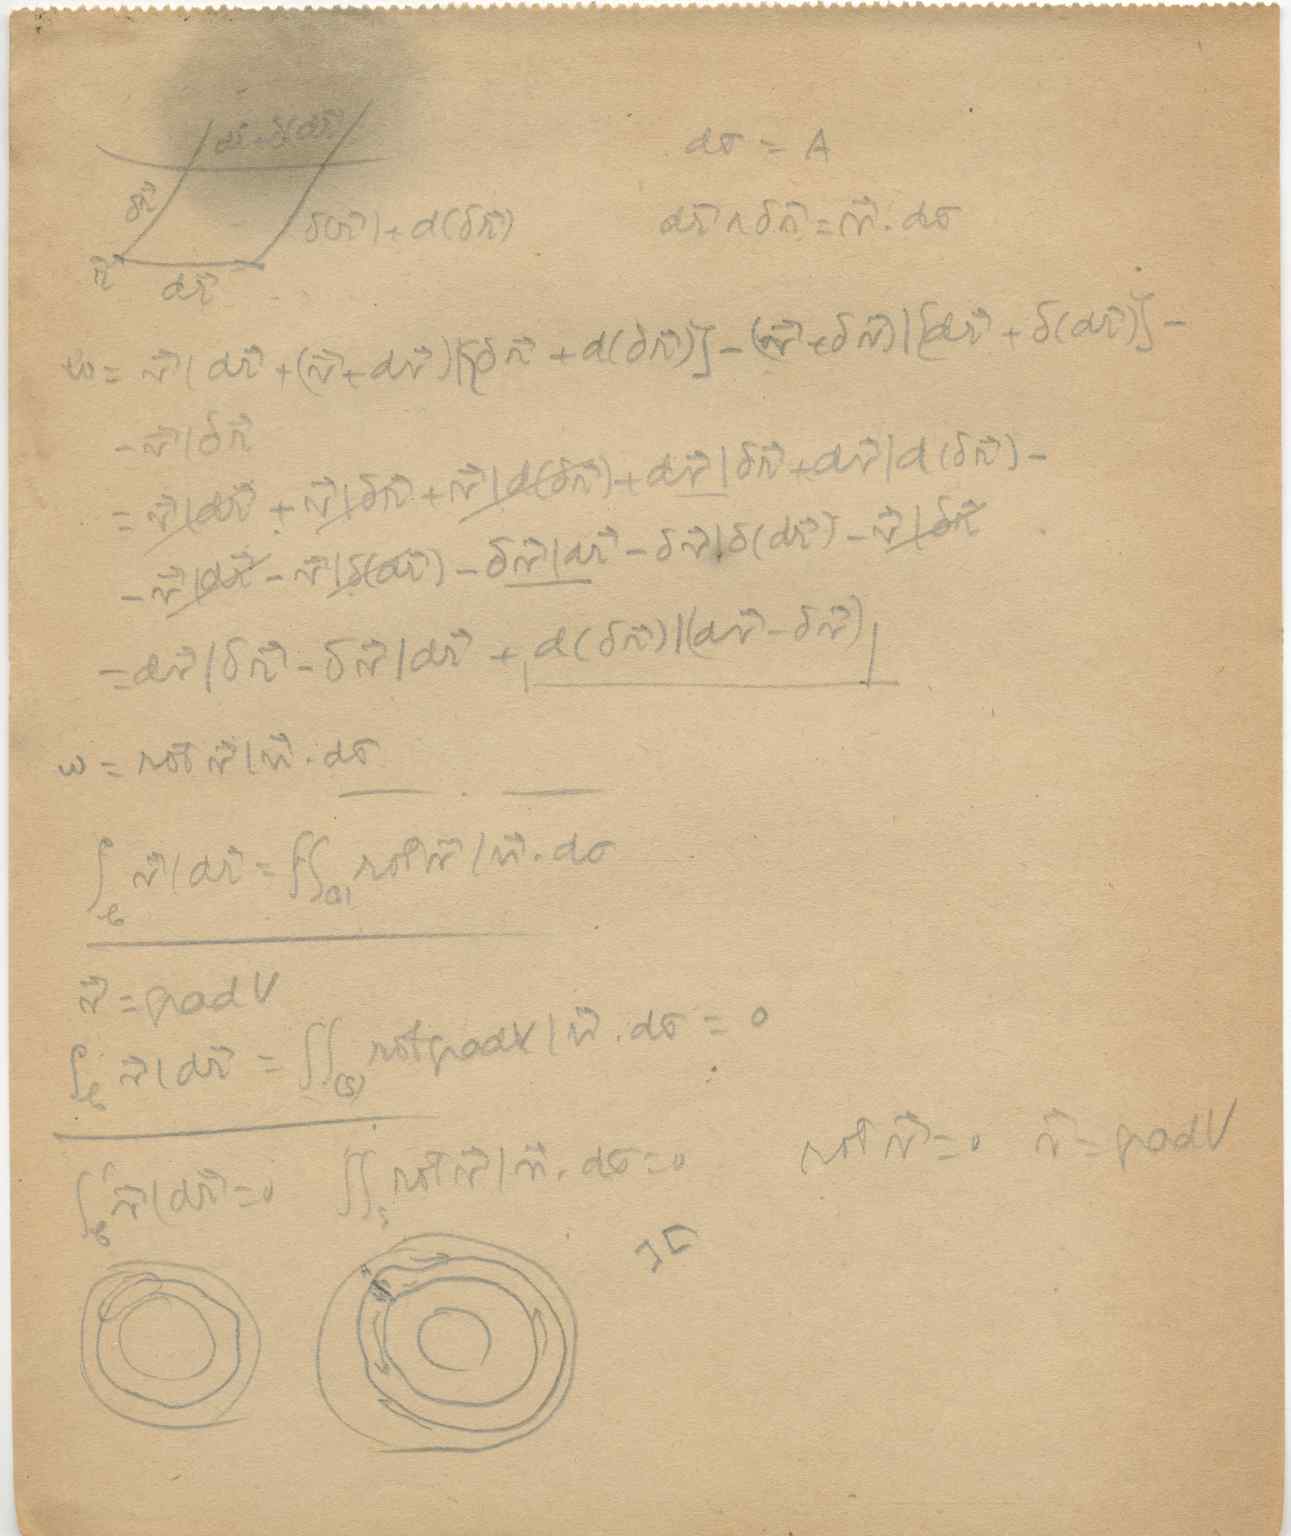 dr⃗ + δ(dr⃗)
δr⃗
δ(r⃗) + d(δr⃗)
r⃗
dr⃗
dσ = A
dr⃗ ∧ δr⃗ = n⃗ . dσ
ω = v⃗ | dr⃗ + (v⃗ + dv⃗) | [δr⃗ + d(δr⃗)] - (v⃗ + δv⃗) | [dr⃗ + δ(dr⃗)] -
- v⃗ | δr⃗
= v⃗ | dr⃗ + v⃗ | δr⃗ + v⃗ | d(δr⃗) + dv⃗ | δr⃗ + dv⃗ | d(δr⃗) -
- v⃗ | dr⃗ - v⃗ | δ(dr⃗) - δv⃗ | dr⃗ - δv⃗ | δ(dr⃗) - v⃗ | δr⃗
= dv⃗ | δr⃗ - δv⃗ | dr⃗ + d(δr⃗) | (dv⃗ - δv⃗)
ω = rot v⃗ | n⃗ . dσ
∫_C v⃗ | dr⃗ = ∬_(S) rot v⃗ | n⃗ . dσ
v⃗ = grad V
∫_C v⃗ | dr⃗ = ∬_(S) rot grad V | n⃗ . dσ = 0
∫_C v⃗ | dr⃗ = 0 ∬_S rot v⃗ | n⃗ . dσ = 0 rot v⃗ = 0 v⃗ = grad V